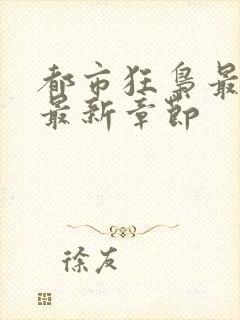 都市狂枭最
最新章节
徐友